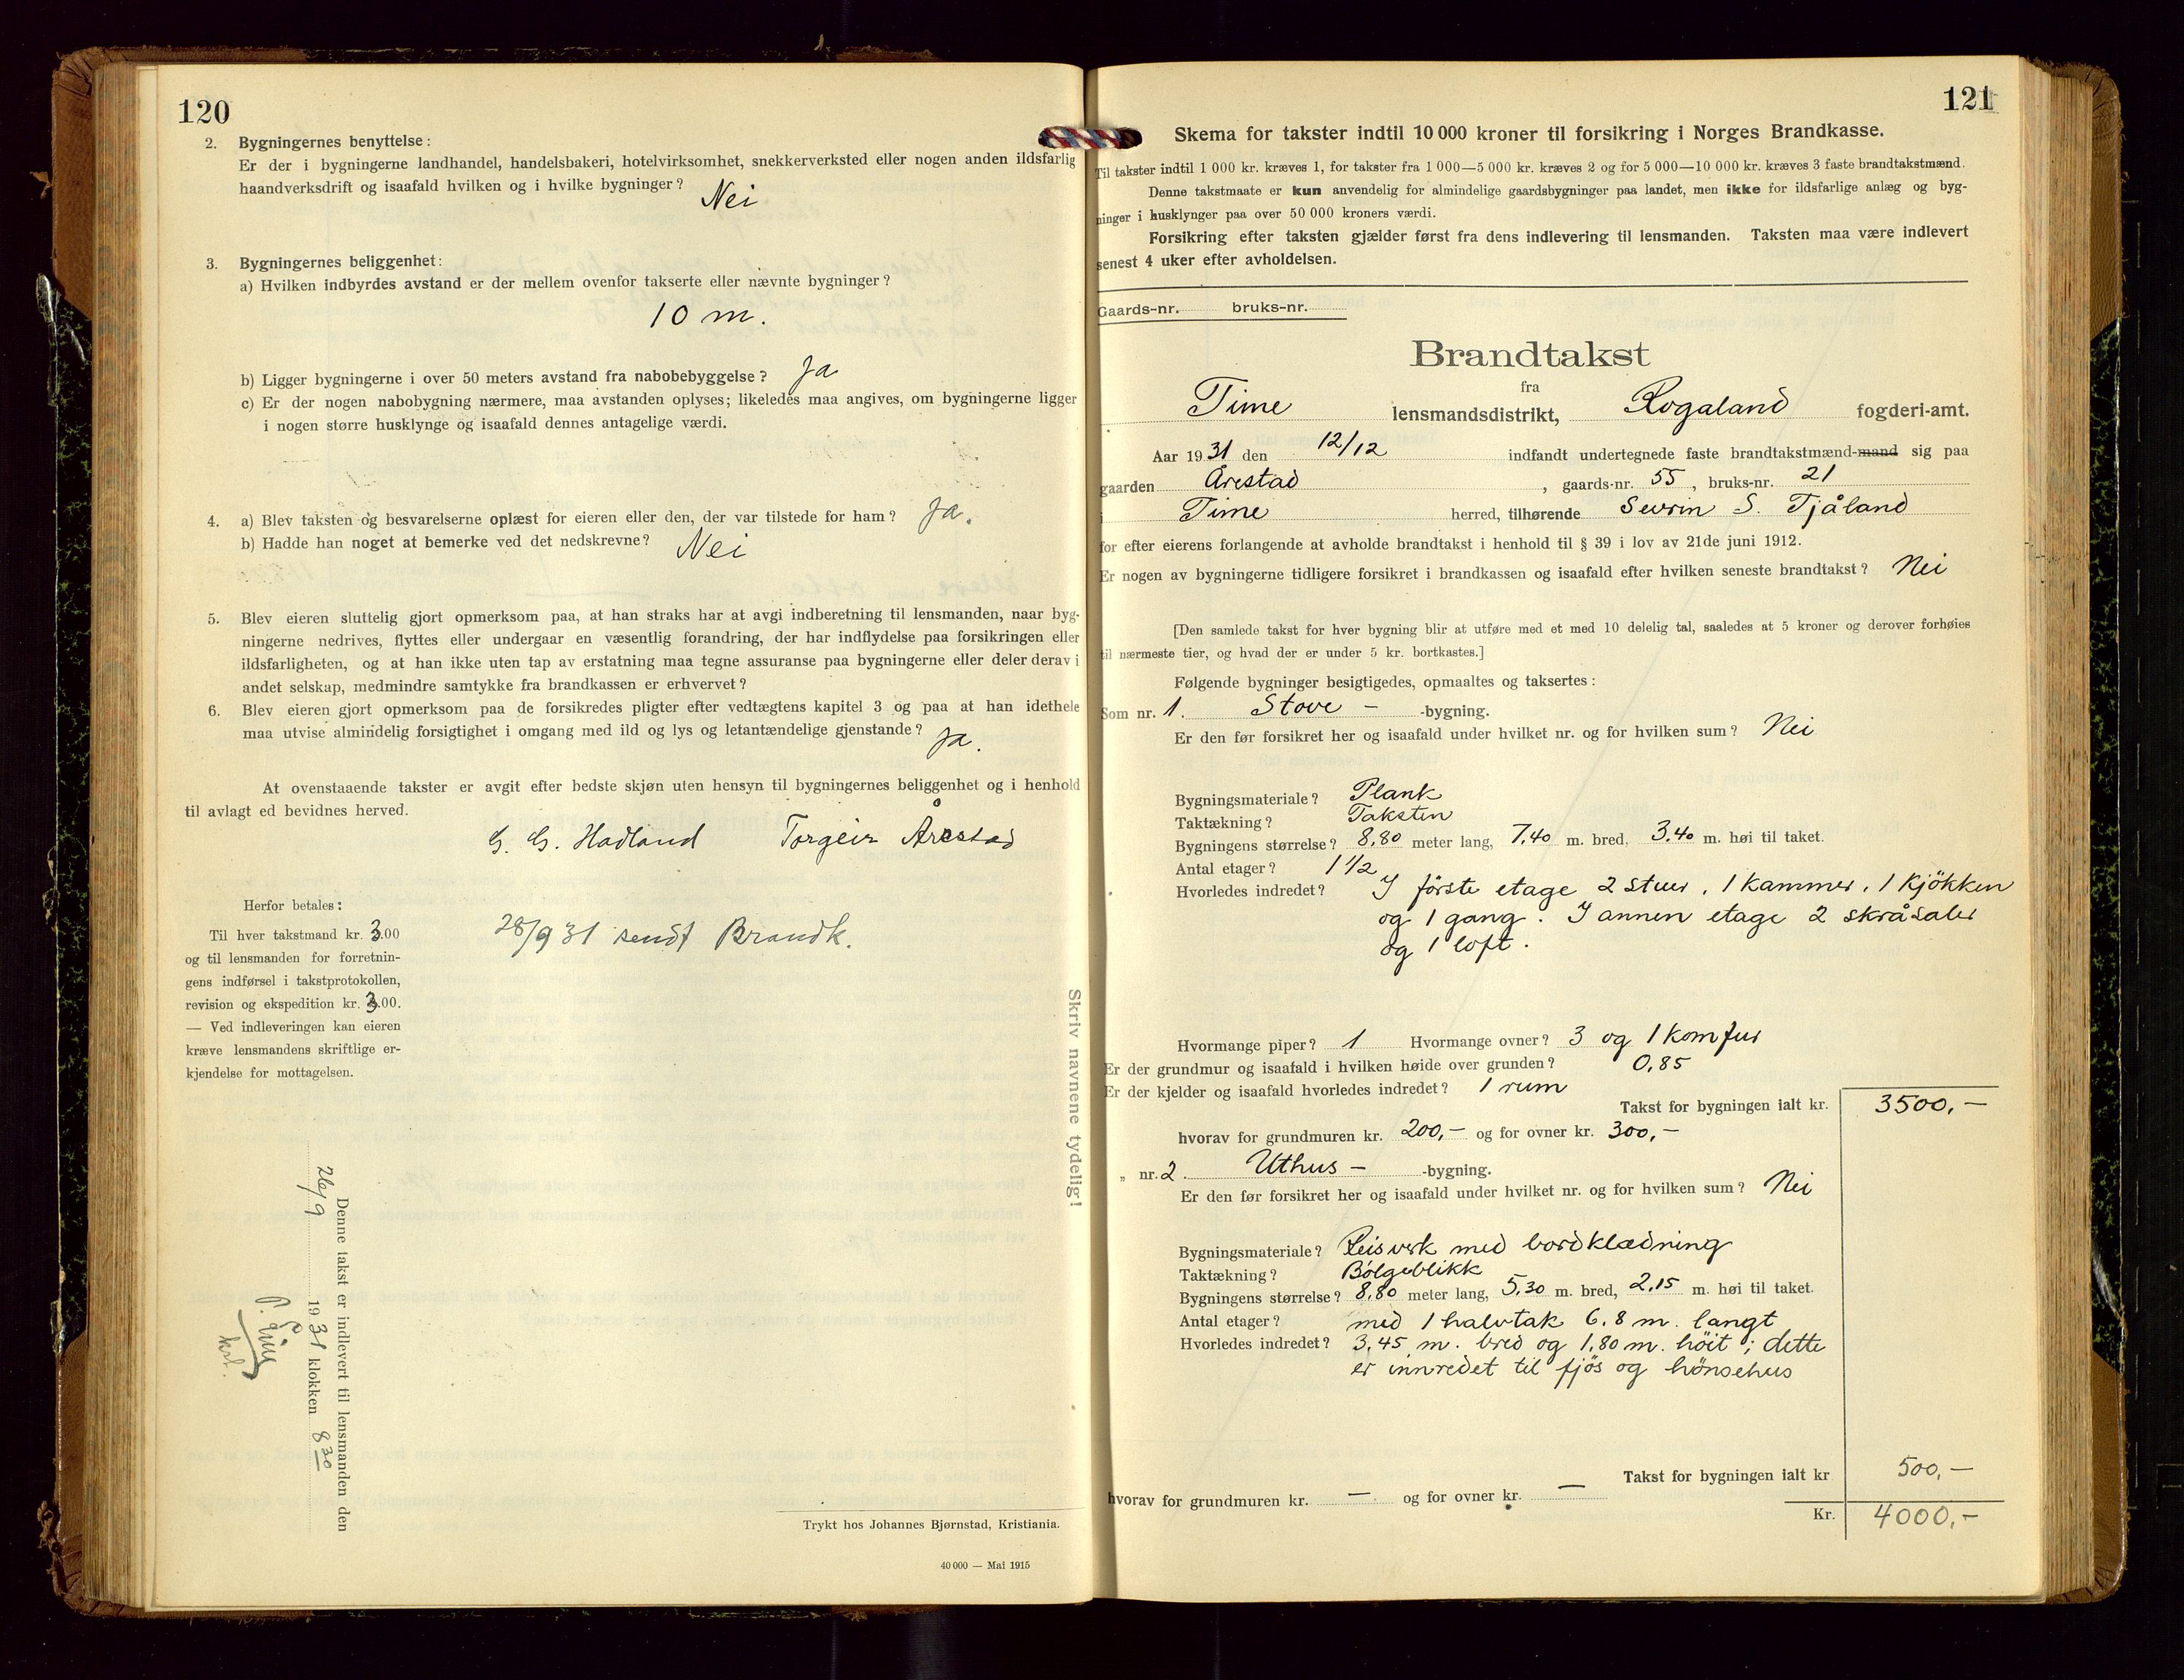 120
2. Bygningernes benyttelse:
Er der i bygningerne landhandel, handelsbakeri, hotelvirksomhet, snekkerverksted eller nogen anden ildsfarlig
haandverksdrift og isaafald hvilken og i hvilke bygninger? Nei
3. Bygningernes beliggenhet:
a) Hvilken indbyrdes avstand er der mellem ovenfor takserte eller nævnte bygninger?
10 m.
b) Ligger bygningerne i over 50 meters avstand fra nabobebyggelse? Ja
c) Er der nogen nabobygning nærmere, maa avstanden oplyses; likeledes maa angives, om bygningerne ligger
i nogen større husklynge og isaafald dennes antagelige værdi.
4. a) Blev taksten og besvarelserne oplæst for eieren eller den, der var tilstede for ham? Ja.
b) Hadde han noget at bemerke ved det nedskrevne? Nei
5. Blev eieren sluttelig gjort opmerksom paa, at han straks har at avgi indberetning til lensmanden, naar byg-
ningerne nedrives, flyttes eller undergaar en væsentlig forandring, der har indflydelse paa forsikringen eller
ildsfarligheten, og at han ikke uten tap av erstatning maa tegne assuranse paa bygningerne eller deler derav i
andet selskap, medmindre samtykke fra brandkassen er erhvervet?
6. Blev eieren gjort opmerksom paa de forsikredes pligter efter vedtægtens kapitel 3 og paa at han idethele
maa utvise almindelig forsigtighet i omgang med ild og lys og letantændelige gjenstande? Ja.
At ovenstaaende takster er avgit efter bedste skjøn uten hensyn til bygningernes beliggenhet og i henhold
til avlagt ed bevidnes herved.
G. G. Hadland Torgeir Årestad
Herfor betales:
Til hver takstmand kr. 3.00
og til lensmanden for forretnin-
gens indførsel i takstprotokollen,
revision og ekspedition kr. 3.00.
— Ved indleveringen kan eieren
kræve lensmandens skriftlige er-
kjendelse for mottagelsen.
28/9 31 sendt Brandk.
Skriv navnene tydelig!
Denne takst er indlevert til lensmanden den
26/9 1931 klokken 8 30
Trykt hos Johannes Bjørnstad, Kristiania.
40 000 — Mai 1915
121
Skema for takster indtil 10 000 kroner til forsikring i Norges Brandkasse.
Til takster indtil 1 000 kr. kræves 1, for takster fra 1 000—5 000 kr. kræves 2 og for 5 000—10 000 kr. kræves 3 faste brandtakstmænd.
Denne takstmaate er kun anvendelig for almindelige gaardsbygninger paa landet, men ikke for ildsfarlige anlæg og byg-
ninger i husklynger paa over 50 000 kroners værdi.
Forsikring efter taksten gjælder først fra dens indlevering til lensmanden. Taksten maa være indlevert
senest 4 uker efter avholdelsen.
Gaards-nr. bruks-nr.
Brandtakst
fra
Time lensmandsdistrikt, Rogaland fogderi-amt.
Aar 1931 den 12/12 indfandt undertegnede faste brandtakstmænd-mand sig paa
gaarden Årestad, gaards-nr. 55, bruks-nr. 21
i Time herred, tilhørende Sevrin S. Tjåland
for efter eierens forlangende at avholde brandtakst i henhold til § 39 i lov av 21de juni 1912.
Er nogen av bygningerne tidligere forsikret i brandkassen og isaafald efter hvilken seneste brandtakst? Nei
[Den samlede takst for hver bygning blir at utføre med et med 10 delelig tal, saaledes at 5 kroner og derover forhøies
til nærmeste tier, og hvad der er under 5 kr. bortkastes.]
Følgende bygninger besigtigedes, opmaaltes og taksertes:
Som nr. 1. Stove - -bygning.
Er den før forsikret her og isaafald under hvilket nr. og for hvilken sum? Nei
Bygningsmateriale? Plank
Taktækning? Taksten
Bygningens størrelse? 8,80 meter lang, 7,40 m. bred, 3,40 m. høi til taket.
Antal etager? 1 1/2
Hvorledes indredet? I förste etage 2 stuer, 1 kammer, 1 kjökken
og 1 gang. I annen etage 2 skråsaler
og 1 loft.
Hvormange piper? 1 Hvormange ovner? 3 og 1 komfur
Er der grundmur og isaafald i hvilken høide over grunden? 0,85
Er der kjelder og isaafald hvorledes indredet? 1 rum
Takst for bygningen ialt kr. 3500,-
hvorav for grundmuren kr. 200,- og for ovner kr. 300,-
„ nr. 2. Uthus - -bygning.
Er den før forsikret her og isaafald under hvilket nr. og for hvilken sum? Nei
Bygningsmateriale? Reisverk med bordklædning
Taktækning? Bölgeblikk
Bygningens størrelse? 8,80 meter lang, 5,30 m. bred, 2,15 m. høi til taket.
Antal etager? med 1 halvtak 6.8 m. langt
Hvorledes indredet? 3,45 m. bred og 1,80 m. höit; dette
er innredet til fjös og hönsehus
Takst for bygningen ialt kr 500,-
hvorav for grundmuren kr. — og for ovner kr. —
Kr. 4000,-